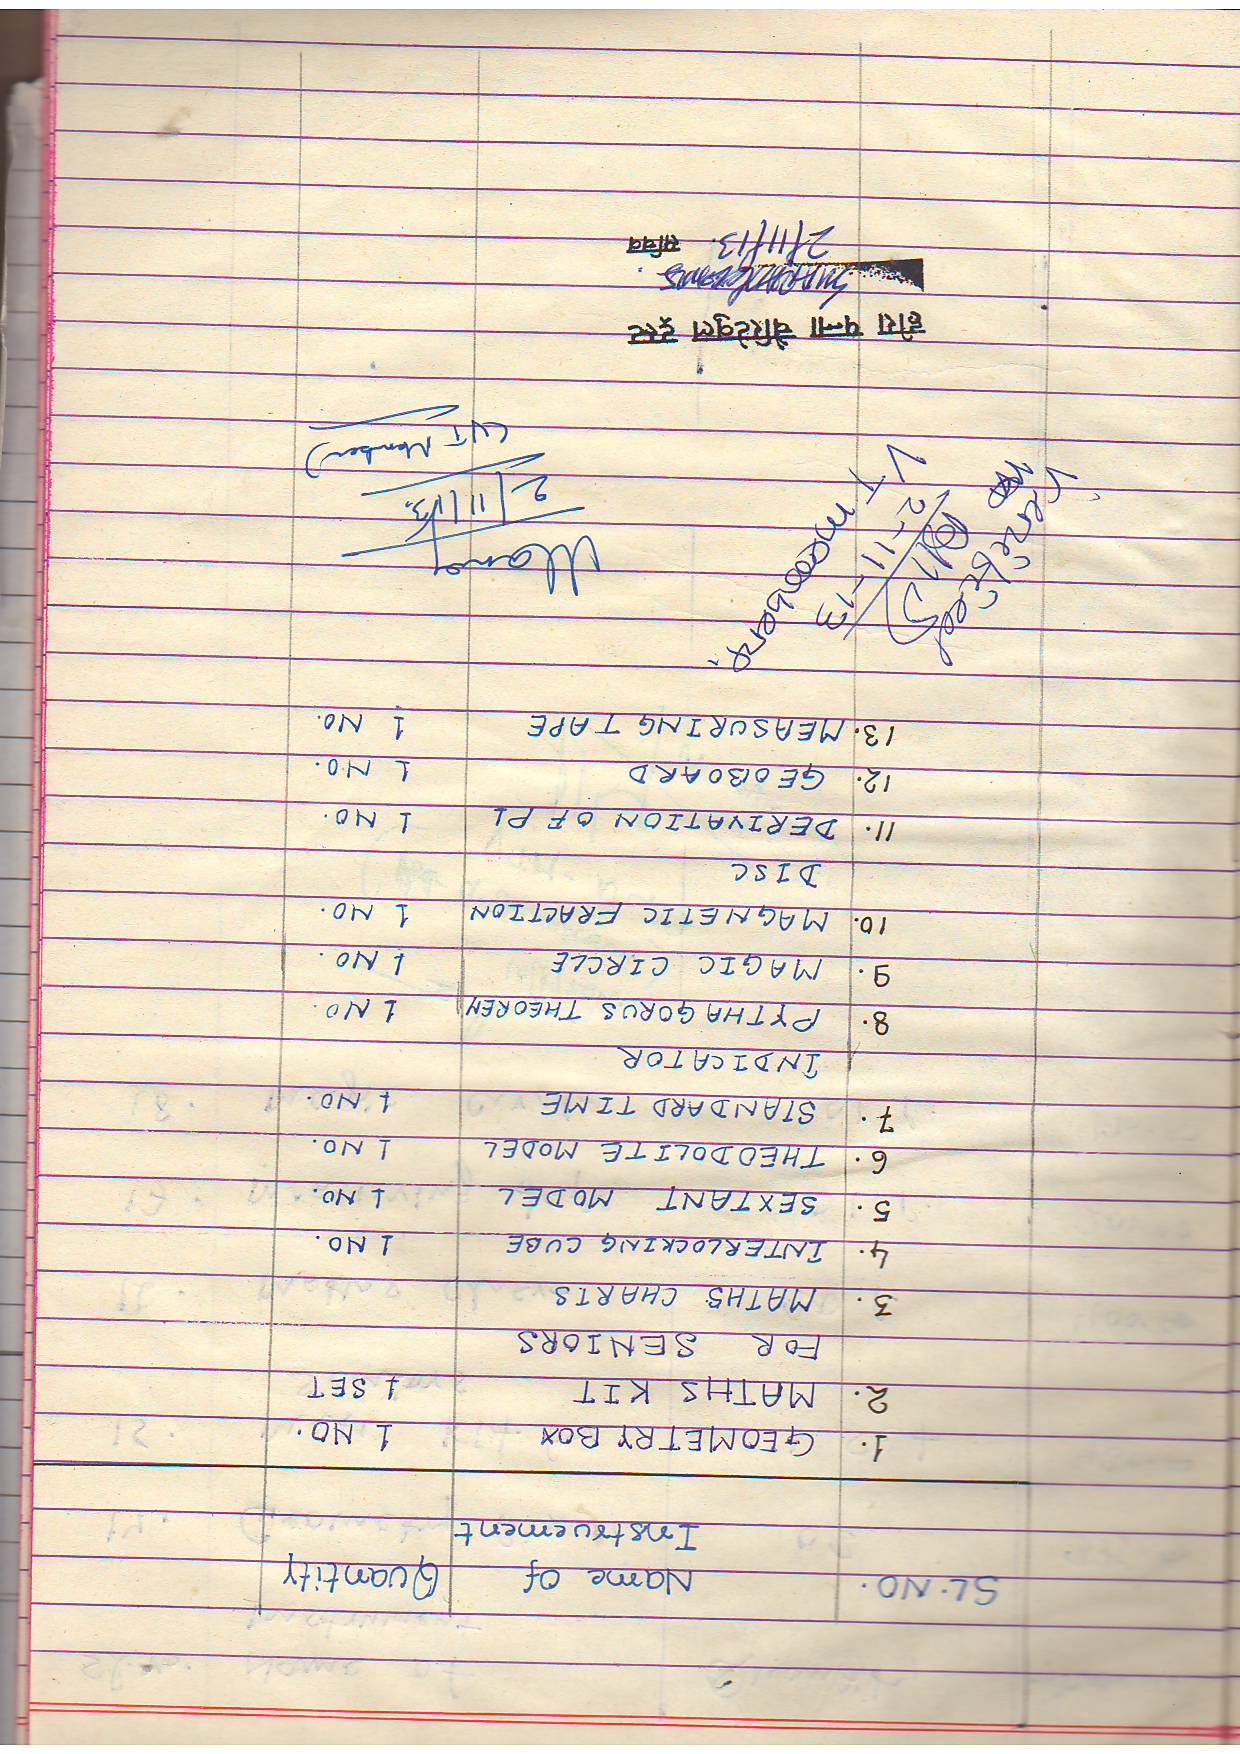 SL.NO. Name of Quantity
Instruement
1. GEOMETRY BOX 1 NO.
2. MATHS KIT 1 SET
FOR SENIORS
3. MATHS CHARTS
4. INTERLOCKING CUBE 1 NO.
5. SEXTANT MODEL 1 NO.
6. THEODOLITE MODEL 1 NO.
7. STANDARD TIME 1 NO.
INDICATOR
8. PYTHAGORUS THEOREM 1 NO.
9. MAGIC CIRCLE 1 NO.
10. MAGNETIC FRACTION 1 NO.
DISC
11. DERIVATION OF PI 1 NO.
12. GEOBOARD 1 NO.
13. MEASURING TAPE 1 NO.
Manoj
2/11/13.
(VT Member)
2-11-13
VT
हीरा पन्ना चैरिटेबुल ट्रस्ट
2/11/13. सचिव